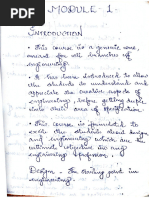 MODULE - 1
INTRODUCTION
• This course is a generic one,
meant for all branches of
engineering.
• It has been introduced to allow
the students to understand and
appreciate the creative aspects of
engineering, before getting super
into area of specification.
• This course is formulated to
excite the students about design
and engineering which are the
ultimate for any
engineering profession.
Design - The starting point in
engineering.